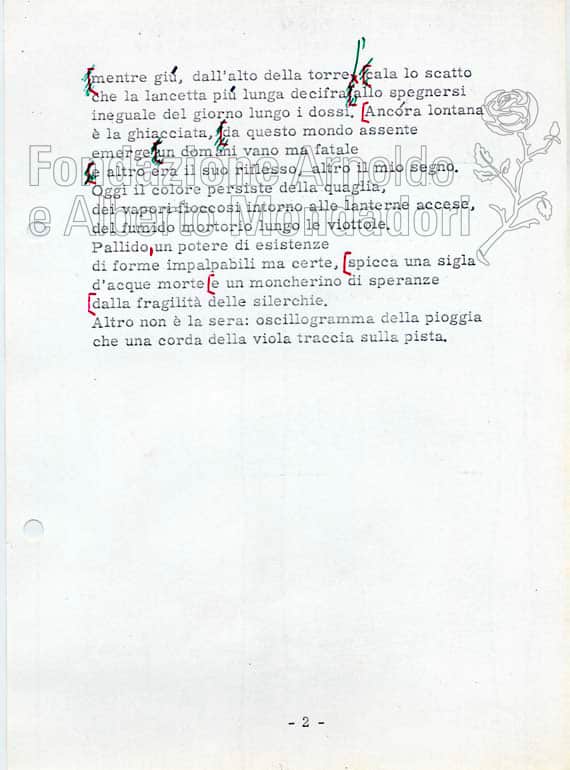 mentre giù, dall'alto della torre, cala lo scatto
che la lancetta più lunga decifra allo spegnersi
ineguale del giorno lungo i dossi. Ancóra lontana
è la ghiacciata, da questo mondo assente
emerge un domani vano ma fatale
e altro era il suo riflesso, altro il mio segno.
Oggi il colore persiste della quaglia,
dei vapori fioccosi intorno alle lanterne accese,
del fumido mortorio lungo le viottole.
Pallido, un potere di esistenze
di forme impalpabili ma certe, spicca una sigla
d'acque morte e un moncherino di speranze
dalla fragilità delle silerchie.
Altro non è la sera: oscillogramma della pioggia
che una corda della viola traccia sulla pista.
Fondazione Arnoldo
e Alberto Mondadori
- 2 -